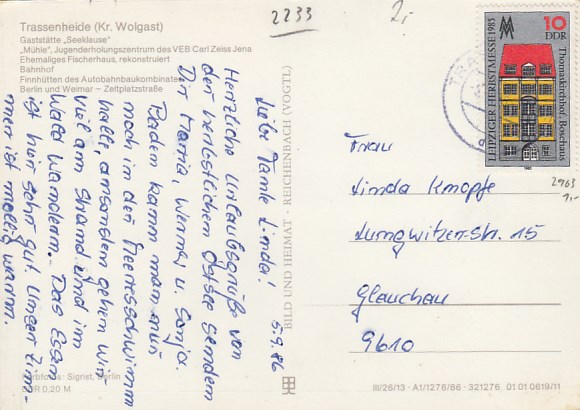 Trassenheide (Kr. Wolgast)
Gaststätte „Seeklause"
„Mühle", Jugenderholungszentrum des VEB Carl Zeiss Jena
Ehemaliges Fischerhaus, rekonstruiert
Bahnhof
Finnhütten des Autobahnbaukombinates
Berlin und Weimar – Zeltplatzstraße
2233
2,-
5.9.86
Liebe Tante Linda!
Herzliche Urlaubsgrüße von
der herbstlichen Ostsee senden
Dir Maria, Werner u. Sonja.
Baden kann man nur
noch in der Meeresschwimm
halle, ansonsten gehen wir
viel am Strand und im
Wald wandern. Das Essen
ist hier sehr gut. Unser Zim-
mer ist mollig warm.
Farbfotos: Sigrist, Berlin
DDR 0,20 M
BILD UND HEIMAT · REICHENBACH (VOGTL)
MM
10
DDR
LEIPZIGER HERBSTMESSE 1985
Thomaskirchhof, Bosehaus
2963
1,-
Frau
Linda Knopfe
Lungwitzer-Str. 15
Glauchau
9610
III/26/13 · A1/1276/86 · 321276 01 01 0619/11